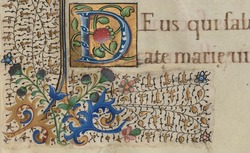 Deus qui sa
ate marie